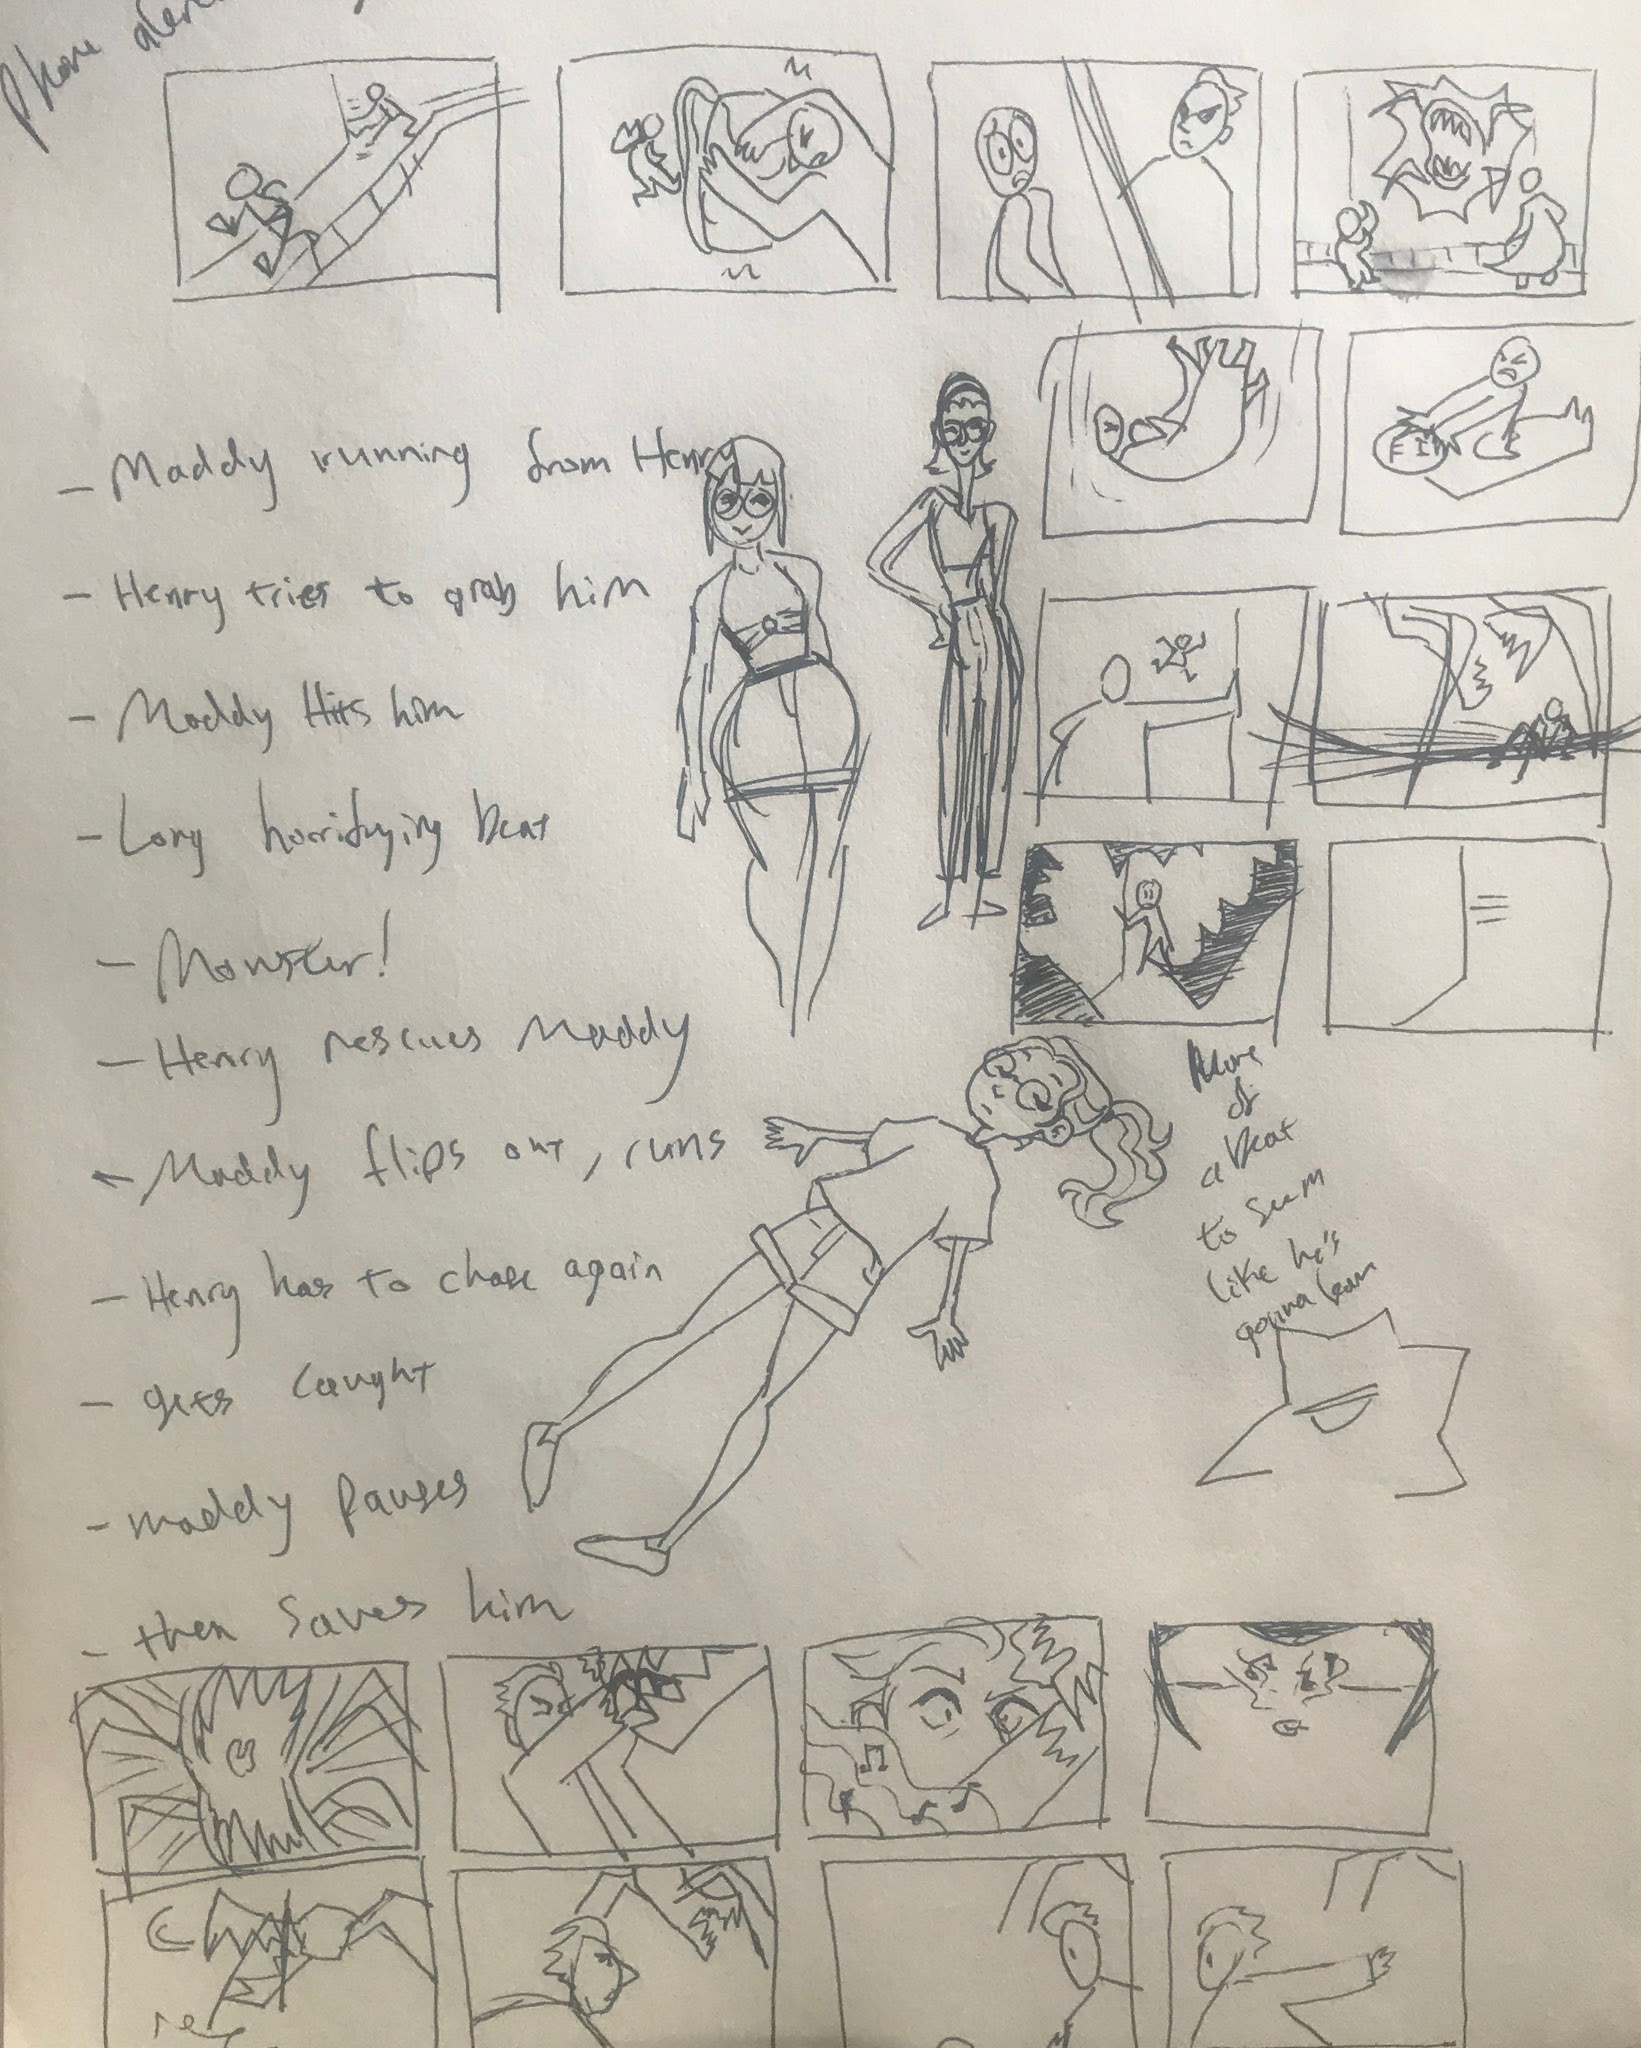 Phone
- Maddy running from Henry
- Henry tries to grab him
- Maddy Hits him
- Long horrifying beat
- Monster!
- Henry rescues Maddy
- Maddy flips out, runs
- Henry has to chase again
- gets caught
- maddy pauses
- then saves him
More
of
a beat
to seem
like he's
gonna leave